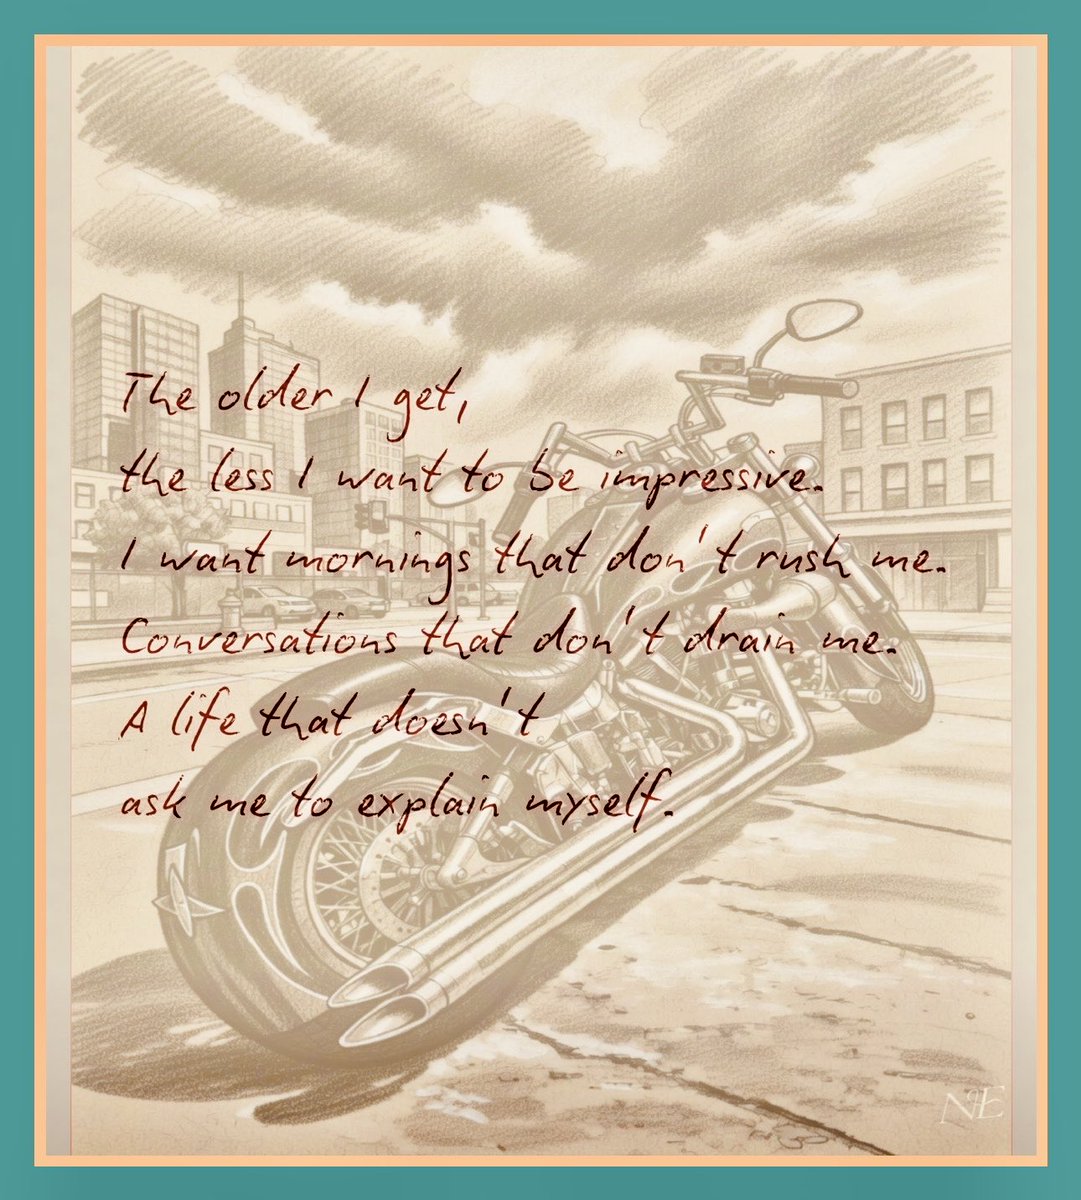 The older I get,
the less I want to be impressive.
I want mornings that don't rush me.
Conversations that don't drain me.
A life that doesn't
ask me to explain myself.
NE